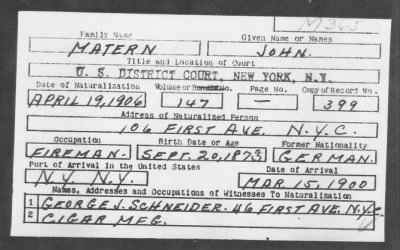 M365
Family Name Given Name or Names
MATERN JOHN.
Title and Location of Court
U. S. DISTRICT COURT, NEW YORK, N.Y.
Date of Naturalization Volume or Bundle No. Page No. Copy of Record No.
APRIL 19, 1906 147 — 399
Address of Naturalized Person
106 FIRST AVE. N.Y.C.
Occupation Birth Date or Age Former Nationality
FIREMAN. SEPT. 20, 1873 GERMAN.
Port of Arrival in the United States Date of Arrival
N.Y. N.Y. MAR. 15, 1900
Names, Addresses and Occupations of Witnesses To Naturalization
1 GEORGE J. SCHNEIDER. 46 FIRST AVE. N.Y.C.
2 CIGAR MFG.